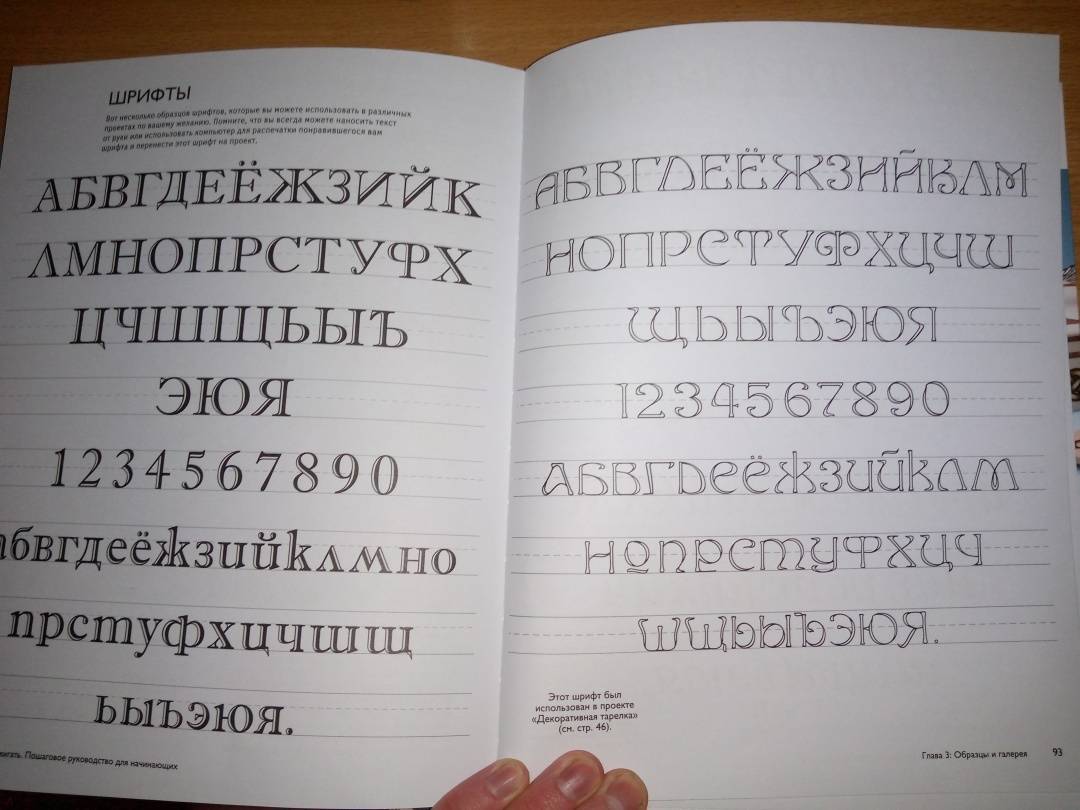 ШРИФТЫ
Вот несколько образцов шрифтов, которые вы можете использовать в различных
проектах по вашему желанию. Помните, что вы всегда можете наносить текст
от руки или использовать компьютер для распечатки понравившегося вам
шрифта и перенести этот шрифт на проект.
АБВГДЕЁЖЗИЙК
ЛМНОПРСТУФХ
ЦЧШЩЬЫЪ
ЭЮЯ
1234567890
абвгдеёжзийклмно
прстуфхцчшщ
ьыъэюя.
Пошаговое руководство для начинающих
АБВГДЕЁЖЗИЙКЛМ
НОПРСТУФХЦЧШ
ЩЬЫЪЭЮЯ
1234567890
абвгдеёжзийклм
нопрстуфхцч
шщьыъэюя.
Этот шрифт был
использован в проекте
«Декоративная тарелка»
(см. стр. 46).
Глава 3: Образцы и галерея 93